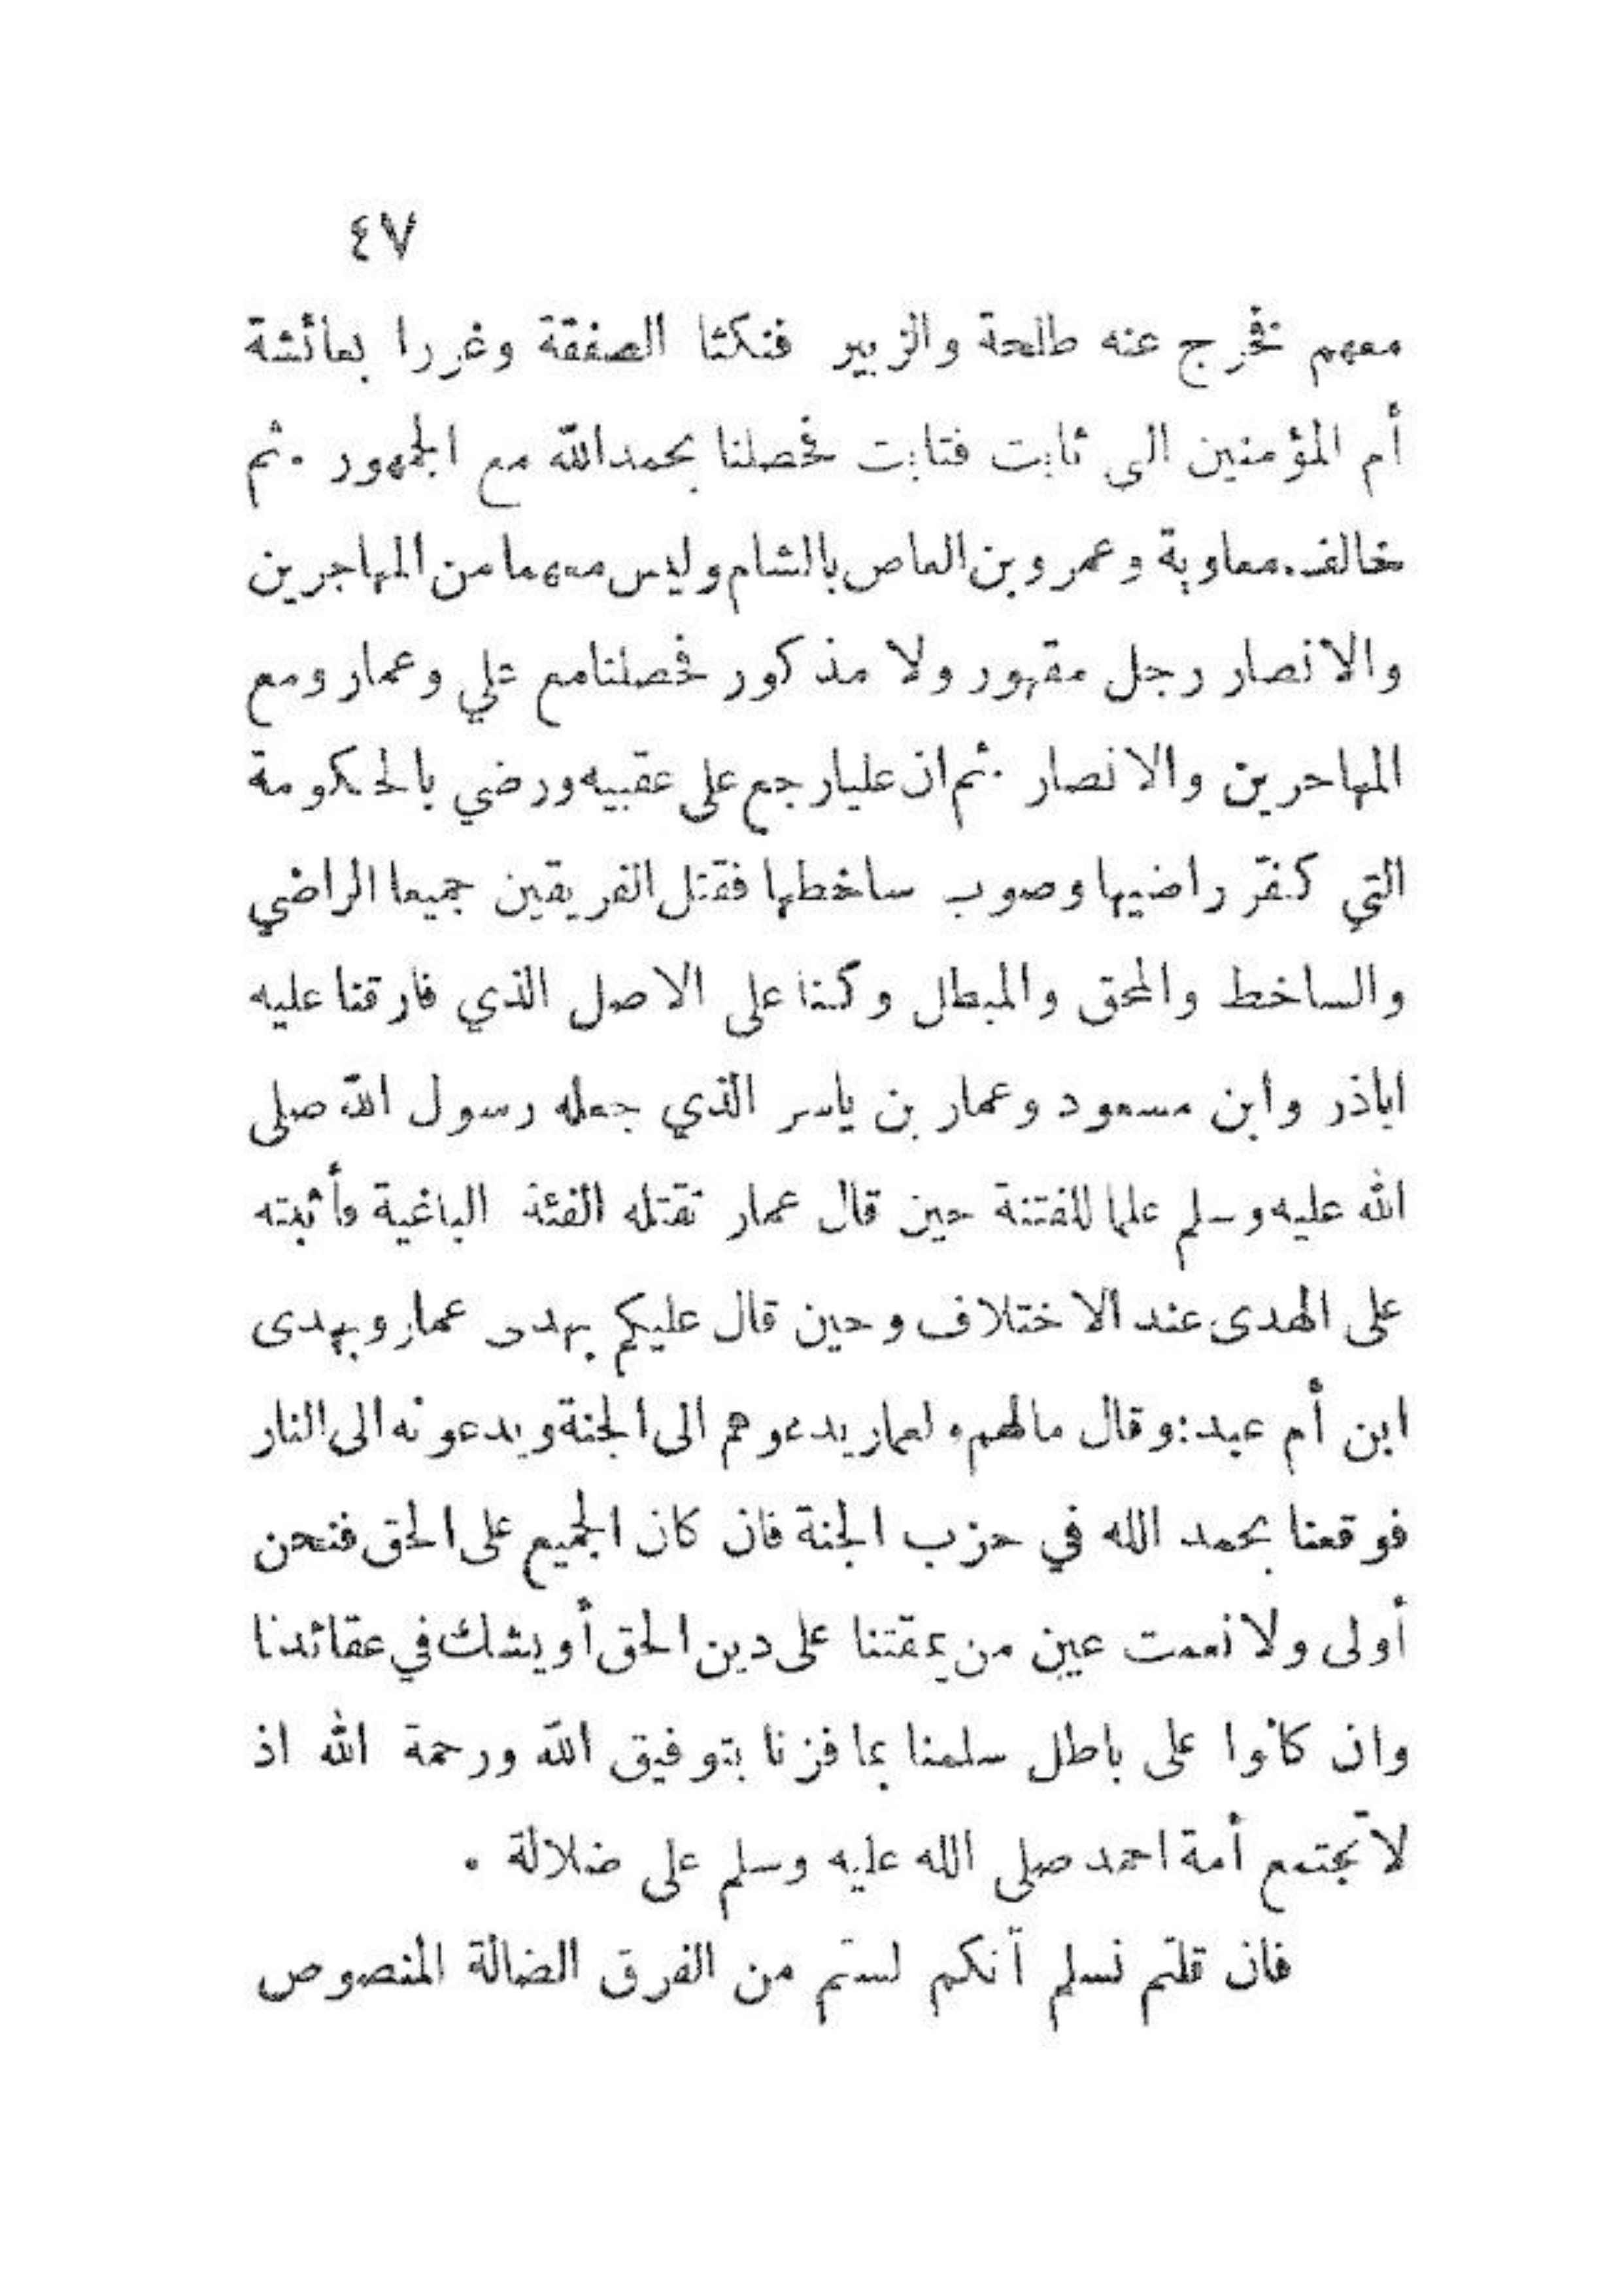 ٤٧
معهم فخرج عنه طلحة والزبير فنكثا الصفقة وغررا بعائشة
أم المؤمنين الى ثابت فتابت فحصلنا بحمدالله مع الجمهور . ثم
خالف معاوية وعمر وبن العاص بالشام وليس معهما من المهاجرين
والانصار رجل مقهور ولا مذكور فحصلنا مع علي وعمار ومع
المهاجرين والانصار . ثم ان عليا رجع على عقبيه ورضي بالحكومة
التي كفّر راضيها وصوب ساخطها فقتل الفريقين جميعا الراضي
والساخط والمحق والمبطل وكنا على الاصل الذي فارقنا عليه
اباذر وابن مسعود وعمار بن ياسر الذي جعله رسول الله صلى
الله عليه وسلم علما للفتنة حين قال عمار تقتله الفئة الباغية وأثبته
على الهدى عند الاختلاف وحين قال عليكم بهدى عمار وبهدى
ابن أم عبد: وقال مالهم ولعمار يدعوهم الى الجنة ويدعونه الى النار
فوقعنا بحمد الله في حزب الجنة فان كان الجميع على الحق فنحن
أولى ولا نعمت عين من يمقتنا على دين الحق أو يشك في عقائدنا
وان كانوا على باطل سلمنا بما فزنا بتوفيق الله ورحمة الله اذ
لا تجتمع أمة احمد صلى الله عليه وسلم على ضلالة .
فان قلتم نسلم آنكم لستم من الفرق الضالة المنصوص